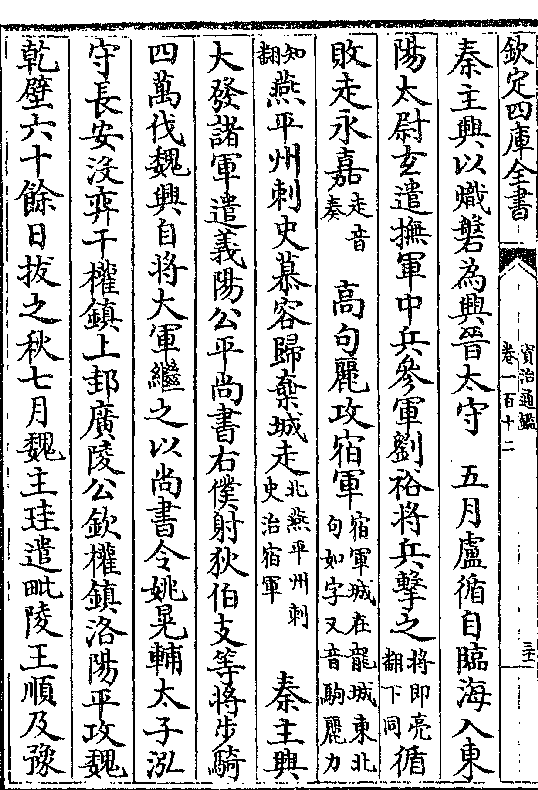 欽定四庫全書
資治通鑑
卷一百十二
秦主興以熾磐為興晉太守 五月盧循自臨海入東
陽太尉玄遣撫軍中兵參軍劉裕將兵擊之將即亮翻下同循
敗走永嘉走音奏 高句麗攻宿軍宿軍城在龍城東北句如字又音駒麗力
知翻燕平州刺史慕容歸棄城走北燕平州刺史治宿軍 秦主興
大發諸軍遣義陽公平尚書右僕射狄伯支等將步騎
四萬伐魏興自將大軍繼之以尚書令姚晃輔太子泓
守長安沒弈干權鎮上邽廣陵公欽權鎮洛陽平攻魏
乾壁六十餘日拔之秋七月魏主珪遣毗陵王順及豫